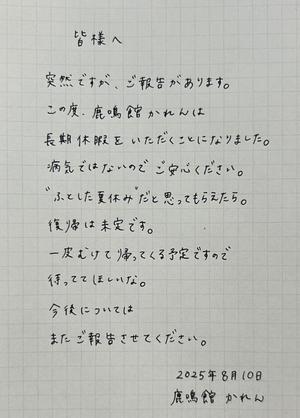 皆様へ
突然ですが、ご報告があります。
この度、鹿鳴館かれんは
長期休暇をいただくことになりました。
病気ではないのでご安心ください。
"ふとした夏休み"だと思ってもらえたら。
復帰は未定です。
一皮むけて帰ってくる予定ですので
待っててほしいな。
今後については
またご報告させてください。
2025年8月10日
鹿鳴館 かれん